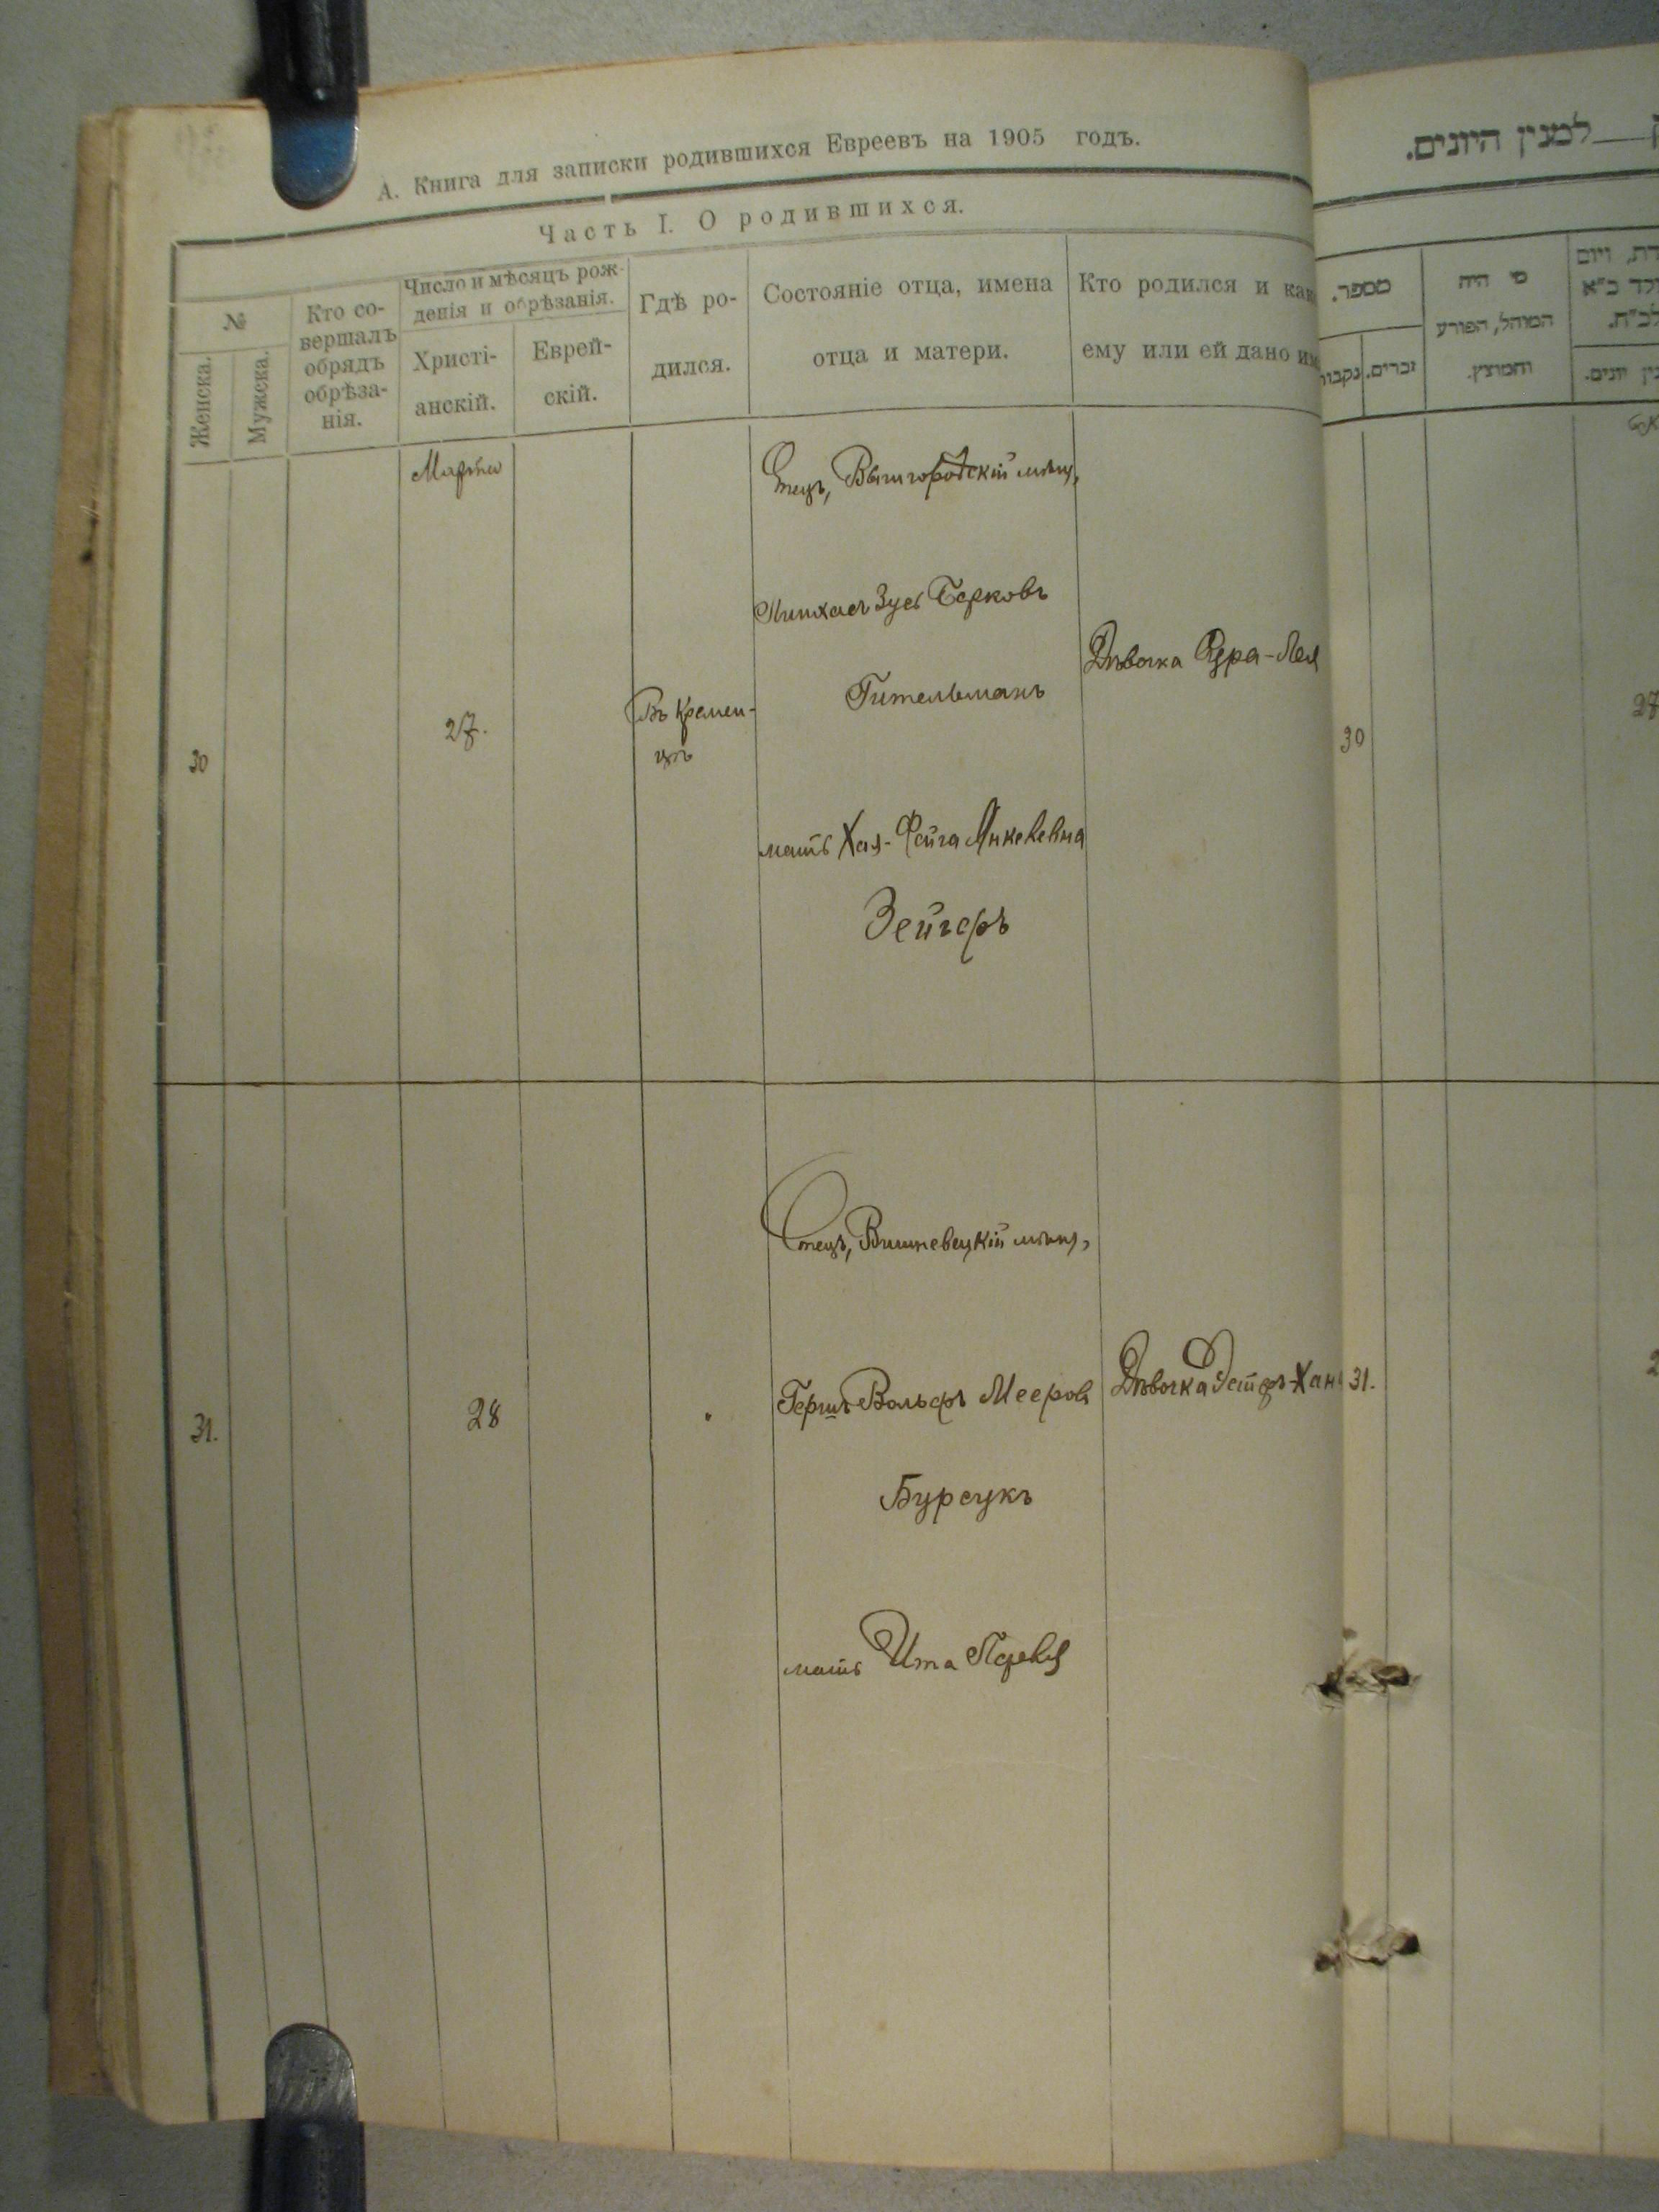 А. Книга для записки родившихся Евреевъ на 1905 годъ.
Часть I. О родившихся.
№
Женска.
Мужска.
Кто со-
вершалъ
обрядъ
обрѣза-
нія.
Число и мѣсяцъ рож-
денія и обрѣзанія.
Христі-
анскій.
Еврей-
скій.
Гдѣ ро-
дился.
Состояніе отца, имена
отца и матери.
Кто родился и как
ему или ей дано им
Марта
30
27.
Въ Кремен-
цѣ
Отецъ, Вышгородскій мѣщ,
Пинхасъ Зусь Берковъ
Гительманъ
мать Хая-Фейга Янкелевна
Зейгеръ
Дѣвочка -Лея
31.
28
Отецъ, Вишневецкій мѣщ,
Гершъ Вольфъ Мееровъ
Бурсукъ
мать Ита
Дѣвочка Эстеръ-Хан
למנין היונים.
מספר.
נקבות
זכרים.
מי היה
המוהל, הפורע
והמוצץ.
ויום
כ"א
לכ"ח.
יונים.
30
27
31.